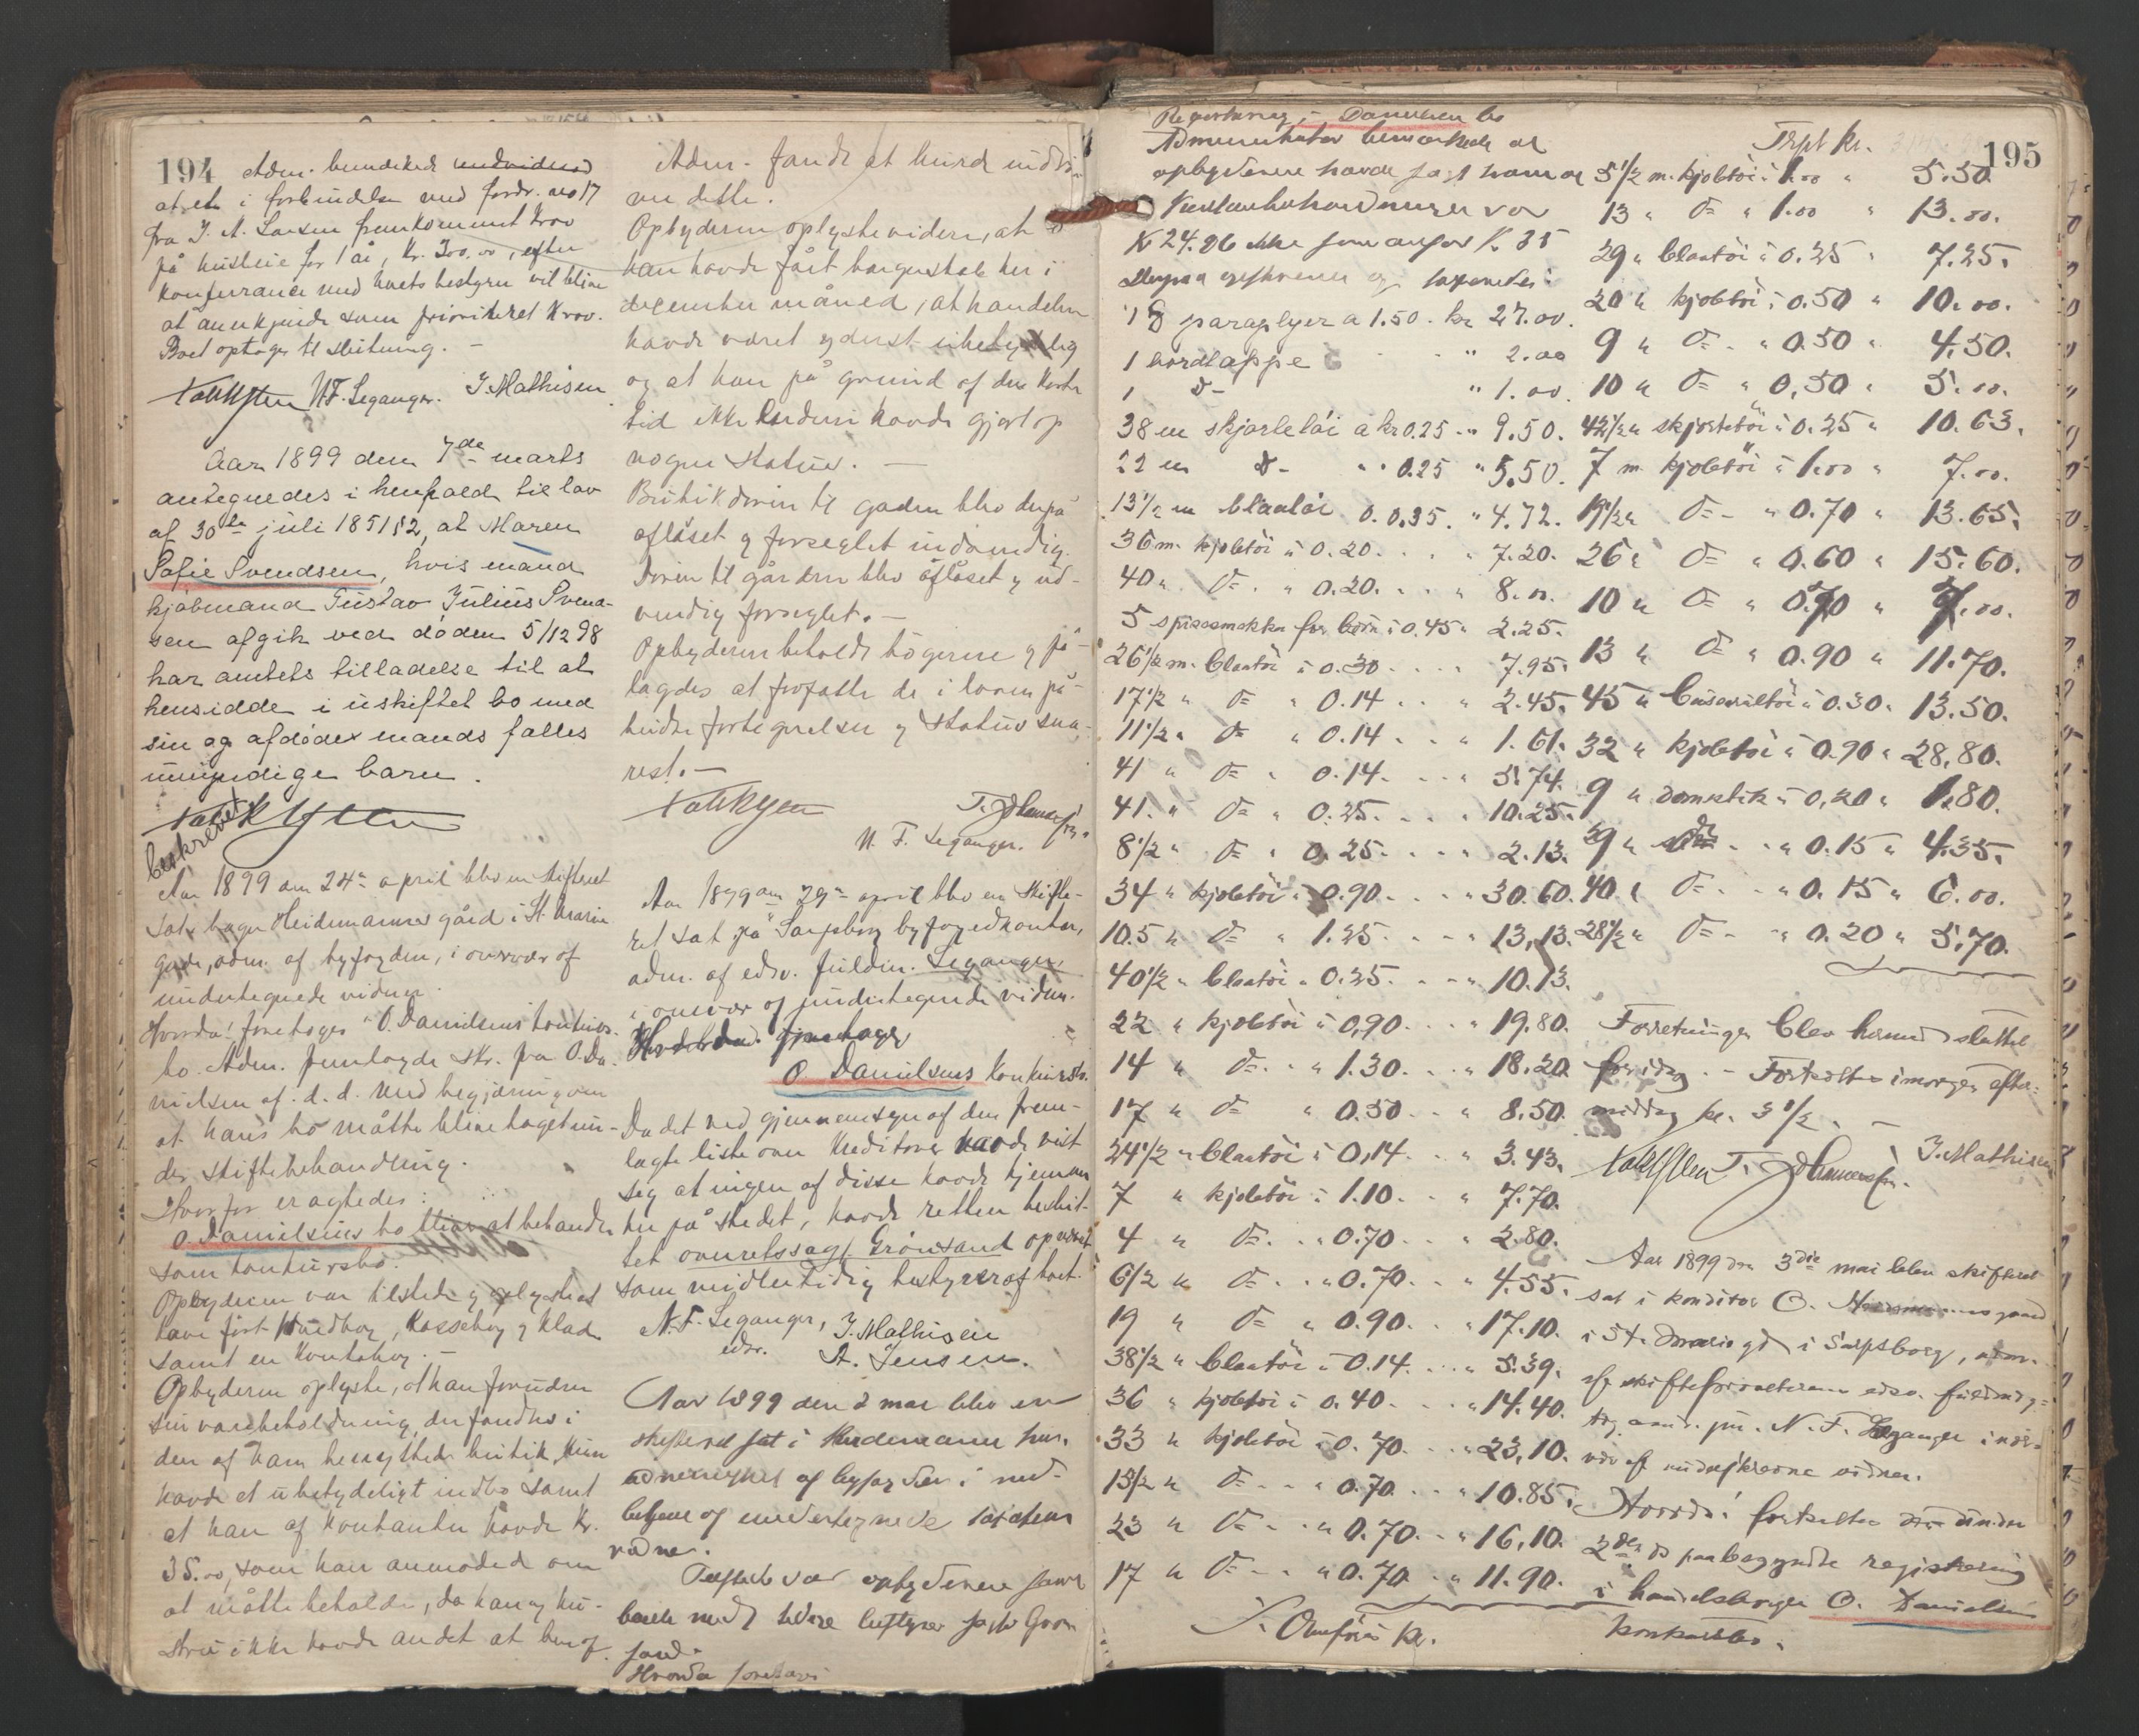 194
Adm. bemærkede
at et i forbindelse med fordr. no 17
fra J. A. Larsen fremkommet krav
på husleie for 1 år, kr. 300.00, efter
konferrance med boets bestyrer vil blive
at anerkjende som prioriteret krav.
Boet optages til slutning. —
N. F. Leganger. J. Mathisen
Aar 1899 den 7de marts
antegnedes i henhold til lov
af 30te juli 1851 § 2, at Maren
Sofie Svendsen, hvis mand
kjøbmand Gustav Julius Svend-
sen afgik ved døden 5/12 98
har amtets tilladelse til at
hensidde i uskiftet bo med
sin og afdødes mands fælles
umyndige barn.
beskrevet
Aar 1899 den 24de april blev en skifteret
sat i bager Heidemanns gård i St. Marie
gade, adm. af byfogden, i overvær af
undertegnede vidner.
Hvorda! foretoges O. Danielsens konkurs-
bo. Adm. fremlagde skr. fra O. Da-
nielsen af d. d. med begjæring om
at hans bo måtte blive taget un-
der skiftebehandling.
Hvorfor eragtedes:
O. Danielsens bo bliver at behandle
som konkursbo.
Opbyderen var tilstede og oplystes at
have ført Hovedbog, Kassebog og Klad
samt en Kontobog. —
Opbyderen oplyste, at han foruden
sin varebeholdning, der fandtes i
den af ham benyttede butik, kun
havde et ubetydeligt indbo samt
at han af kontanter havde kr.
35.00, som han anmodede om
at måtte beholde, da han og hu-
stru ikke havde andet at leve af.
Adm. fandt at burde indrøm-
me dette.
Opbyderen oplyste videre, at
han havde fået borgerskab her i
december måned, at handelen
havde været yderst ubetydelig
og at han på grund af den korte
tid ikke endnu havde gjort op
nogen status. —
Butikdøren til gaden blev derpå
aflåset og forseglet indvendig.
Døren til gården blev aflåset og ud-
vendig forseglet. —
Opbyderen beholdt bøgerne og på-
lagdes at forfatte de i loven på-
budte fortegnelser og status sna-
rest. —
N. F. Leganger.
Aar 1899 den 29de april blev en skifte-
ret sat på Sarpsborg byfogedkontor,
adm. af edsv. fuldm. Leganger,
i overvær af undertegnede vidner.
Hvorda! foretoges
O. Danielsens konkursbo.
Da det ved gjennemsyn af den frem-
lagte liste over kreditorer havde vist
seg at ingen af disse havde hjemme
her på stedet, havde retten beslut-
tet overretssagf. Grønsand opnævnt
som midlertidig bestyrer af boet.
N. F. Leganger, J. Mathisen
edsv. A. Jensen.
Aar 1899 den 2 mai blev en
skifteret sat i Heidemanns hus,
administreret af byfogden i med-
betjene og undertegnede
vidner.
Tilstede var opbyderen samt
boets midlertidige bestyrer
sand.
Hvorda foretoges
195
Registrering i Danielsens bo
Administrator bemærkede at
opbyderen havde sagt ham at
Kontantbeholdningen var
K 24.86 ikke som anført K. 35
Derpaa opskreves og taxeredes:
18 paraplyer a 1.50. kr 27.00.
1 bordlappe " 2.00
1 do " 1.00.
38 m skjortetøi a kr 0.25 " 9.50.
22 m do " 0.25 " 5.50.
13½ m blaatøi a 0.35. " 4.72.
36 m. kjoletøi a 0.20. " 7.20.
40 " do " 0.20. " 8.00.
5 spisesmekker for børn a 0.45 " 2.25.
26½ m. blaatøi a 0.30 7.95.
17½ " do " 0.14 " 2.45.
11½ " do " 0.14 " 1.61.
41 " do " 0.14. " 5.74.
41. " do " 0.25. " 10.25.
8½ " do " 0.25. " 2.13.
34 " kjoletøi " 0.90. " 30.60.
10.5 " do " 1.25. " 13,13.
40½ " blaatøi " 0.25. " 10.13.
22 " kjoletøi a 0,90. " 19.80.
14 " do " 1.30. " 18.20.
17 " do " 0.50 " 8.50.
24½ " blaatøi a 0,14. " 3.43.
7 " kjoletøi a 1.10. " 7.70.
4 " do " 0.70 " 2.80.
6½ " do " 0.70. " 4.55.
19 " do " 0.90. " 17.10.
38½ " blaatøi a 0.14. " 5.39.
36 " kjoletøi a 0.40. " 14.40.
33 " kjoletøi a 0.70. " 23,10.
15½ " do " 0.70. " 10.85.
23 " do " 0.70. " 16,10.
17 " do " 0.70. " 11.90.
Omføres kr.
Trspt kr.
5½ m. kjoletøi a 1.00 " 5.50
13 " do " 1.00 " 13.00.
29 " blaatøi a 0.25 " 7.25.
20 " kjoletøi a 0.50 " 10.00.
9 " do " 0.50 " 4.50.
10 " do " 0,50 " 5.00.
42½ " skjortetøi a 0.25 " 10.63.
7 m kjoletøi a 1.00 " 7.00.
19½ " do " 0.70 " 13.65.
26 " do " 0.60 " 15.60.
10 " do " 0.70 " 7.00.
13 " do " 0.90 " 11.70.
45 " buseroltøi a 0.30 " 13.50.
32 " kjoletøi a 0.90 " 28,80.
9 " domestik a 0,20 " 1.80.
29 " do " 0.15 " 4.35.
40 " do " 0.15 " 6.00.
28½ " do " 0.20 " 5,70.
Forretningen blev hermed sluttet
for idag. — Fortsættes imorgen efter-
middag kl. 3½. —
J. Mathisen
Aar 1899 den 3die mai blev skifteret
sat i konditor O. gaard
i St. Marie gd i Sarpsborg, adm.
af skifteforvalteren edsv. fuldmæg-
tig, cand. jur. N. F. Leganger i nær-
vær af undertegnede vidner.
Hvorda! fortsattes den under
2den ds paabegyndte registrering
i handelsborger O. Danielsens
konkursbo.